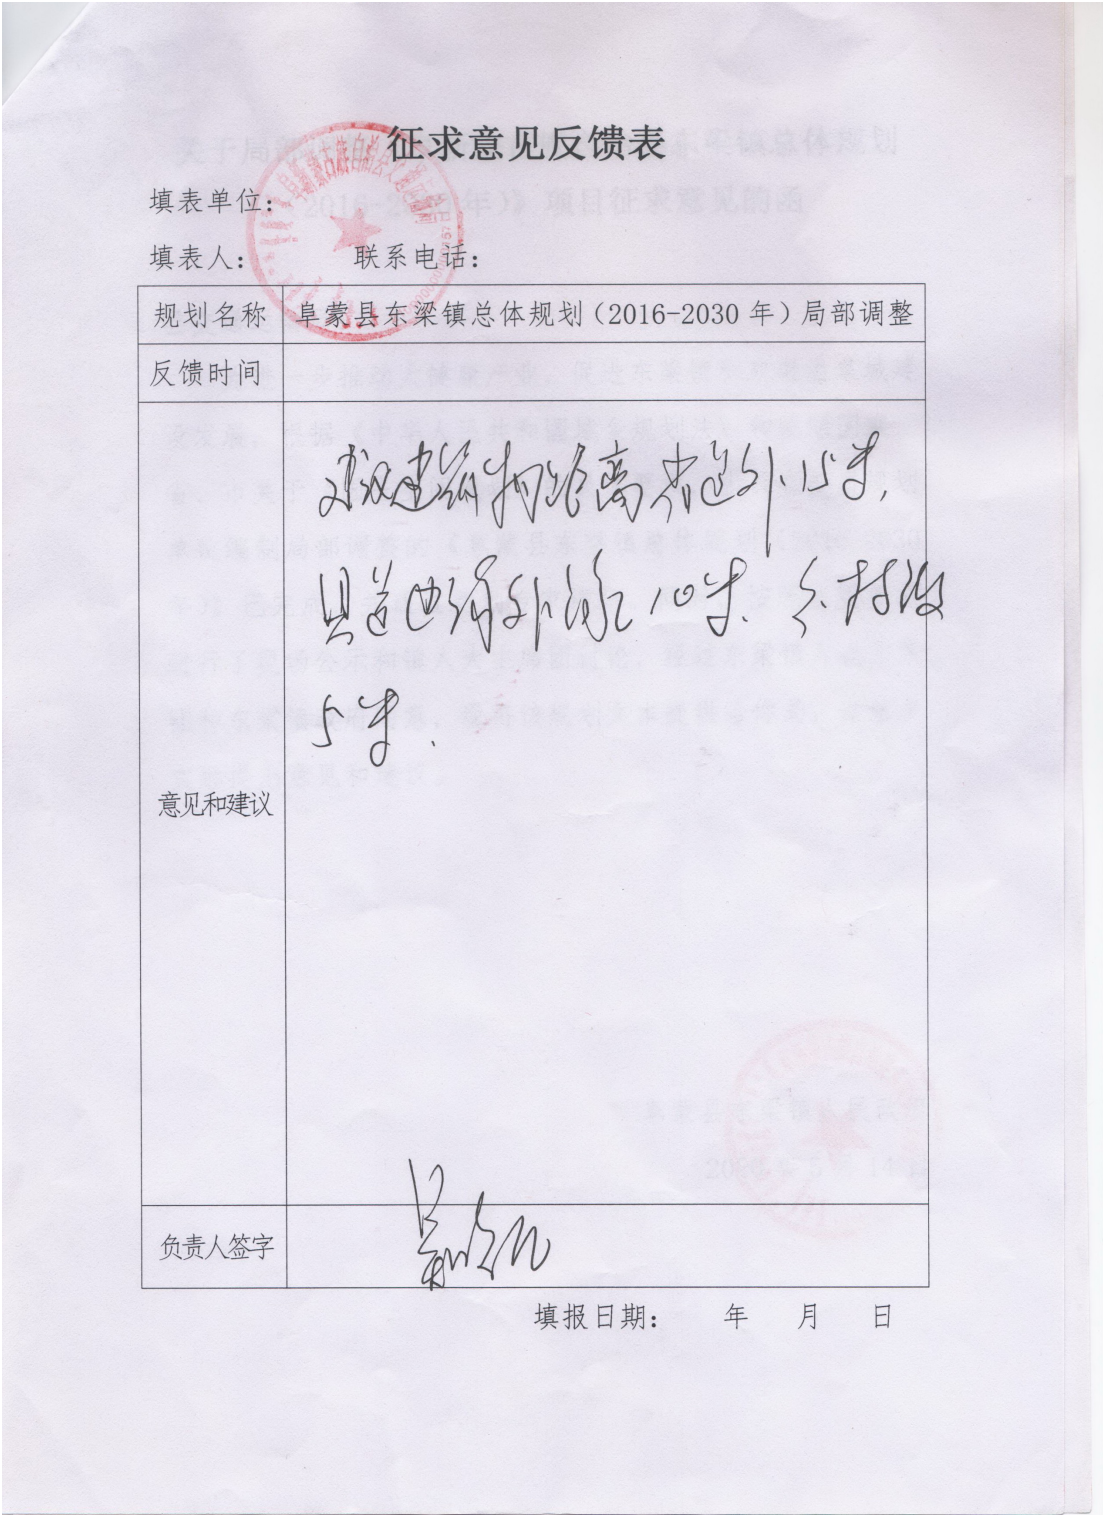 征求意见反馈表
填表单位：
填表人： 联系电话：
规划名称 阜蒙县东梁镇总体规划（2016-2030 年）局部调整
反馈时间
建筑物距离省道外15米，
县道边沟外缘10米、乡村级
5米．
意见和建议
负责人签字
填报日期： 年 月 日